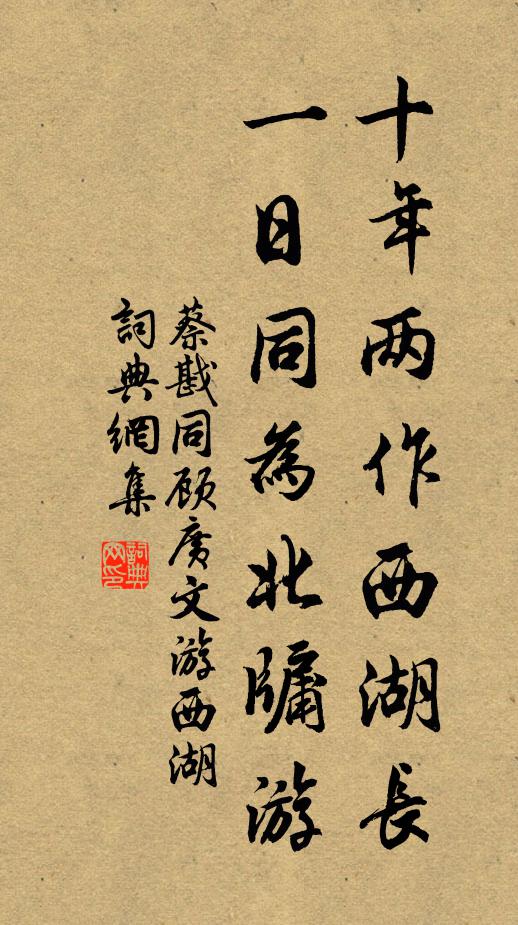 十年两作西湖長
一日同為北牖游
蔡戡同顾廣文游西湖
詞典網集
詞典网印